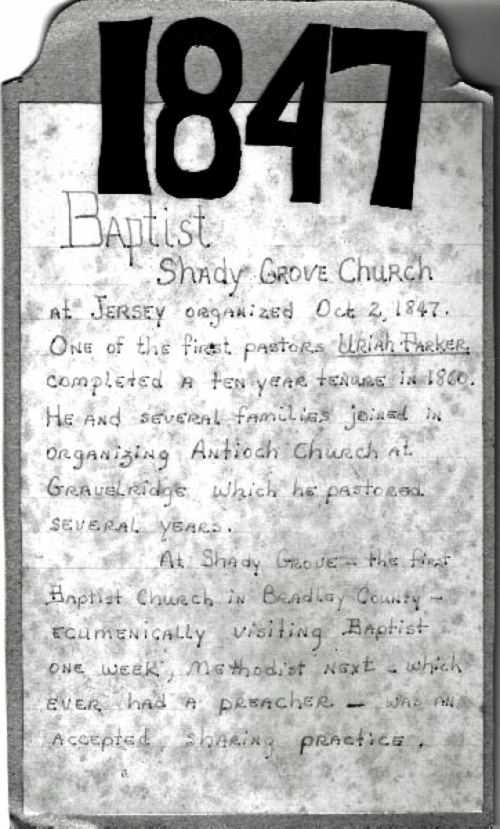 1847
Baptist
Shady Grove Church
at Jersey organized Oct 2, 1847.
One of the first pastors Uriah Parker,
completed a ten year tenure in 1860.
He and several families joined in
organizing Antioch Church at
Gravelridge which he pastored
several years.
At Shady Grove - the first
Baptist Church in Bradley County -
ecumenically visiting Baptist
one week, Methodist next - which
ever had a preacher - was an
accepted sharing practice.